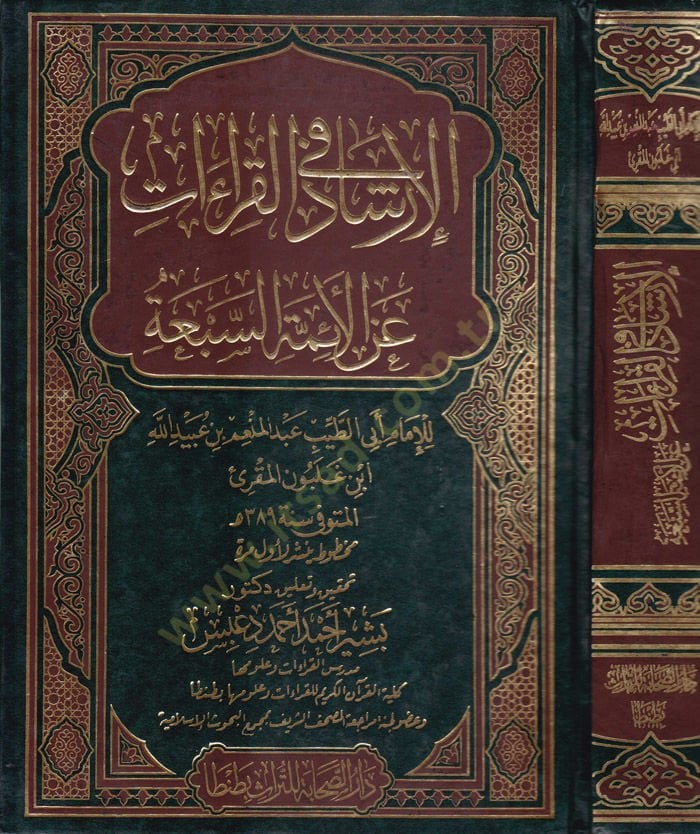 الإرشاد في القراءات
عن الأئمة السبعة
للإمام أبي الطيب عبد المنعم بن عبيد الله
ابن غلبون المقرئ
المتوفى سنة ٣٨٩ هـ
مخطوط ينشر لأول مرة
تحقيق وتعليق دكتور
بشير أحمد أحمد دعبس
مدرس القراءات وعلومها
كلية القرآن الكريم للقراءات وعلومها بطنطا
وعضو لجنة مراجعة المصحف الشريف بمجمع البحوث الإسلامية
دار الصحابة للتراث بطنطا
الإرشاد في القراءات
عن الأئمة السبعة
دار الصحابة للتراث
بطنطا